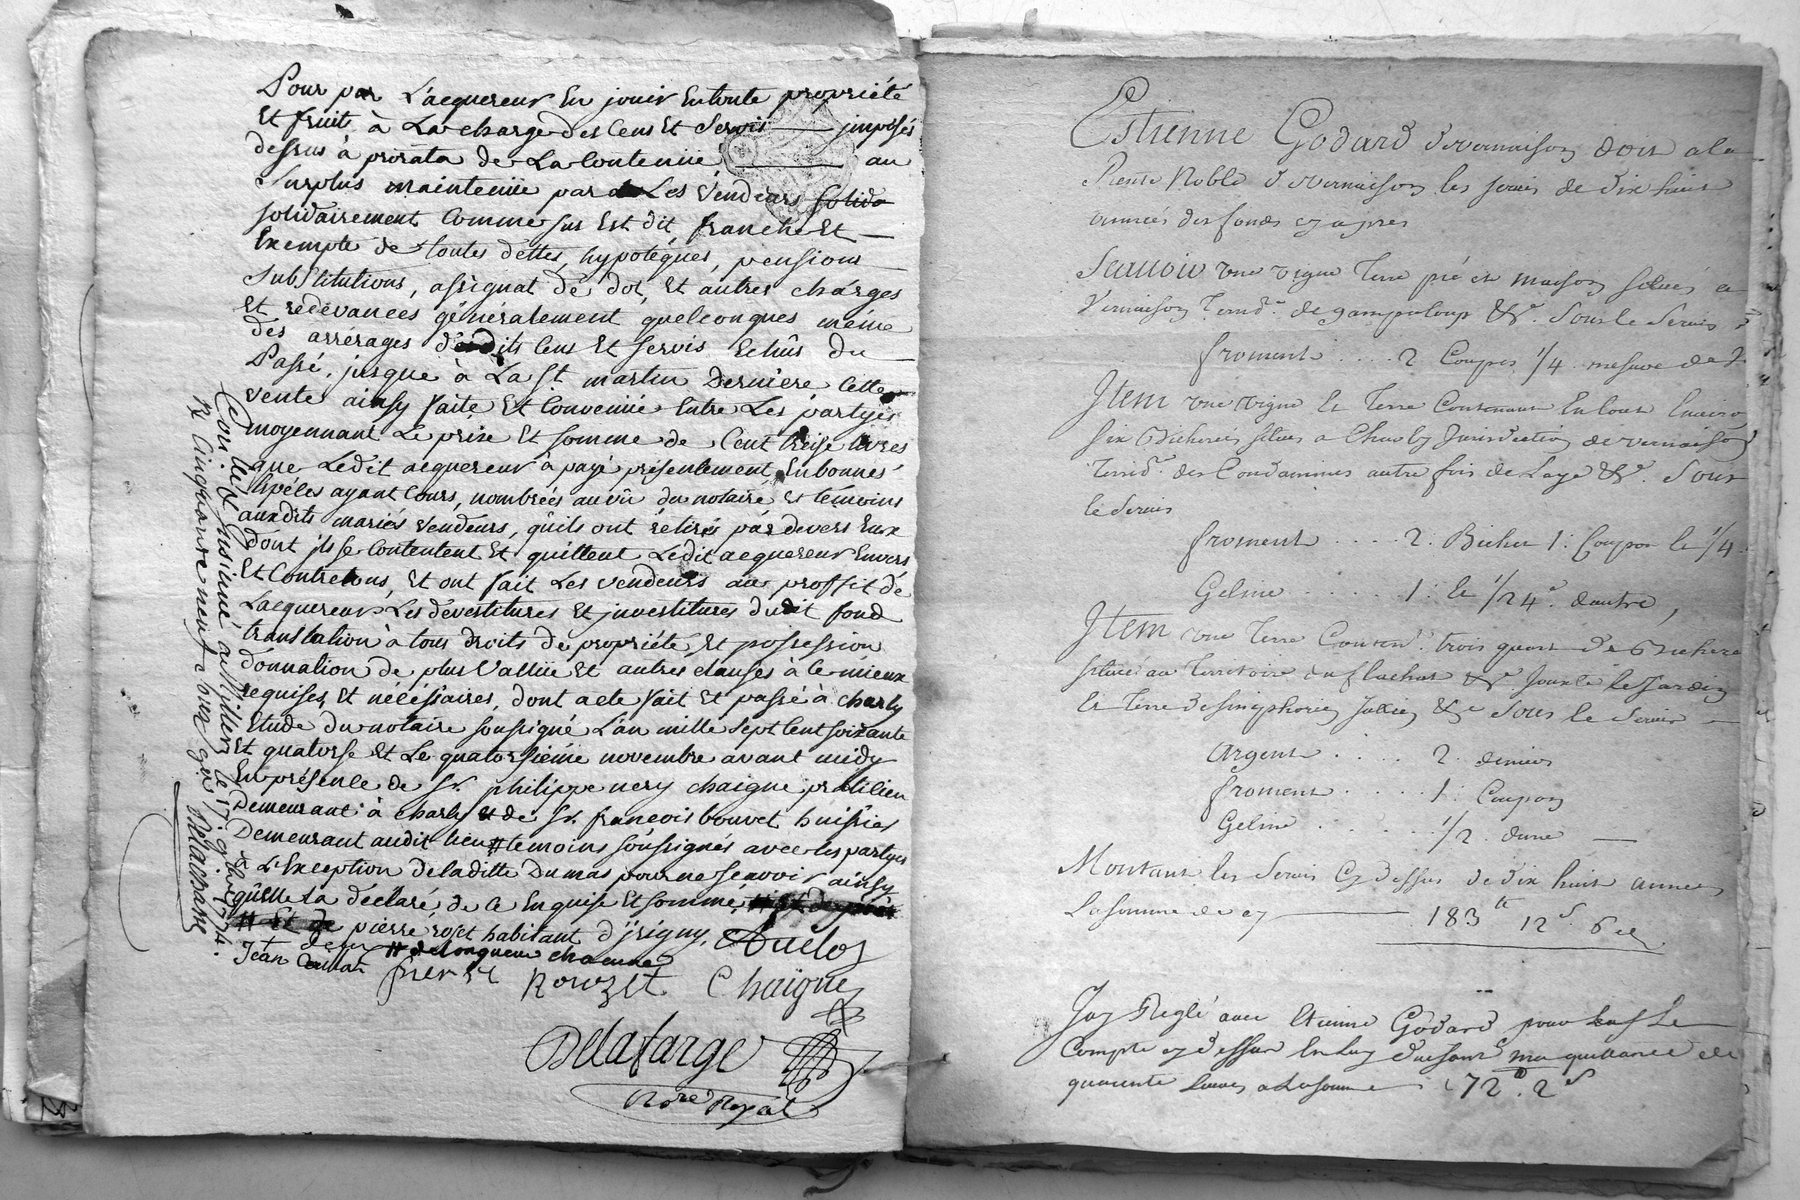 Pour par L'acquereur En jouir Entoute propriété
Et fruit, à La charge des Cens Et Servis imposés
dessus à prorata de La Contenüe au
Surplus maintenüe par Les Vendeurs solida
solidairement Comme sus Est dit franche Et
Exempte de toutes dettes, hypotéques, pensions
Substitutions, assignat de dot, Et autres charges
Et redevances généralement quelconques même
des arrérages desdits Cens Et servis Echûs du
Passé, jusque à La St martin Derniere Cette
vente ainsy faite Et Convenüe Entre Les partyes
moyennant Le prix Et somme de Cent treise livres
que Ledit acquereur à payé présentement, En bonnes
Espéces ayant Cours, nombrées au vû du notaire, Et témoins
auxdits mariés vendeurs, qu'ils ont rétiré par devers Eux
dont ils se Contentent Et quittent Ledit acquereur Envers
Et Contre tous, Et ont fait Les vendeurs au proffit de
Lacquereur Les dévestitures Et investitures dudit fond
translation à tous droits de propriété, Et possession
donnation de plus Vallüe Et autres clauses à ce mieux
requises, Et nécéssaires, dont acte fait Et passé à charly
Etude du notaire soussigné L'an mille sept Cent soixante
Et quatorse Et Le quatorsiéme novembre avant midy
En présence de Sr. philippe nery chaigne praticien
Demeurant à charly Et de Sr. francois bouvet huissier
Demeurant audit lieu # témoins soussignés avec les partyes
à L'Exception de laditte Dumas pour ne scavoir ainsy
qu'elle La déclaré, de ce Enquise Et sommé,
# Et de pierre rojet habitant d'irigny. Duclos
Jean
pierre Rouzet Chaigne
Delafarge
Nore Royal
Controllé Et insinué à Millery le 17. 9bre 1774.
R Cinquante neuf sols
Estienne Godard de vernaison doit a la
Rente Noble de vernaison les servis de dix huit
années des fonds cy apres
Scavoir une vigne Terre pré et maison situés a
Vernaison Territ. de &c. Sous le Servis
froment .... 2 Coupes 1/4 mesure de
Item une vigne Et Terre Contenant En tout Environ
six Bicherées situés a Charly Jurisdiction de vernaison
Territ. des Condamines autre fois de Laye &c. Sous
le Servis
froment .... 2. Bichet 1: Coupon le 1/4
Geline ..... 1: le 1/24e. dautre,
Item une Terre Conten. trois quart de Bicherée
située au Territoire &c. Jouxte le Jardin
Et Terre de &c Sous le Servis
Argent .... 2. deniers
froment .... 1: Coupon
Geline ...... 1/2. dune
Montant les Servis Cy dessus de dix huit années
La somme de cy 183tt 12s 6d
Jay Reglé avec Etienne Godard pour le
Compte cy dessus ma quittance de
quarante a La somme 172tt. 2s